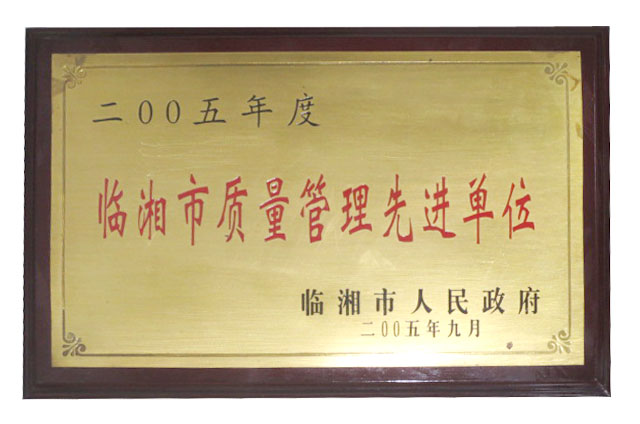 二00五年度
临湘市质量管理先进单位
临湘市人民政府
二00五年九月